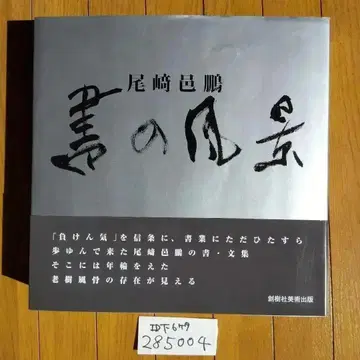 尾﨑邑鵬
書の風景
「負けん気」を信条に、書業にただひたすら
歩ゆんで来た尾﨑邑鵬の書・文集
そこには年輪をえた
老樹風骨の存在が見える
創樹社美術出版
ID下649
285004